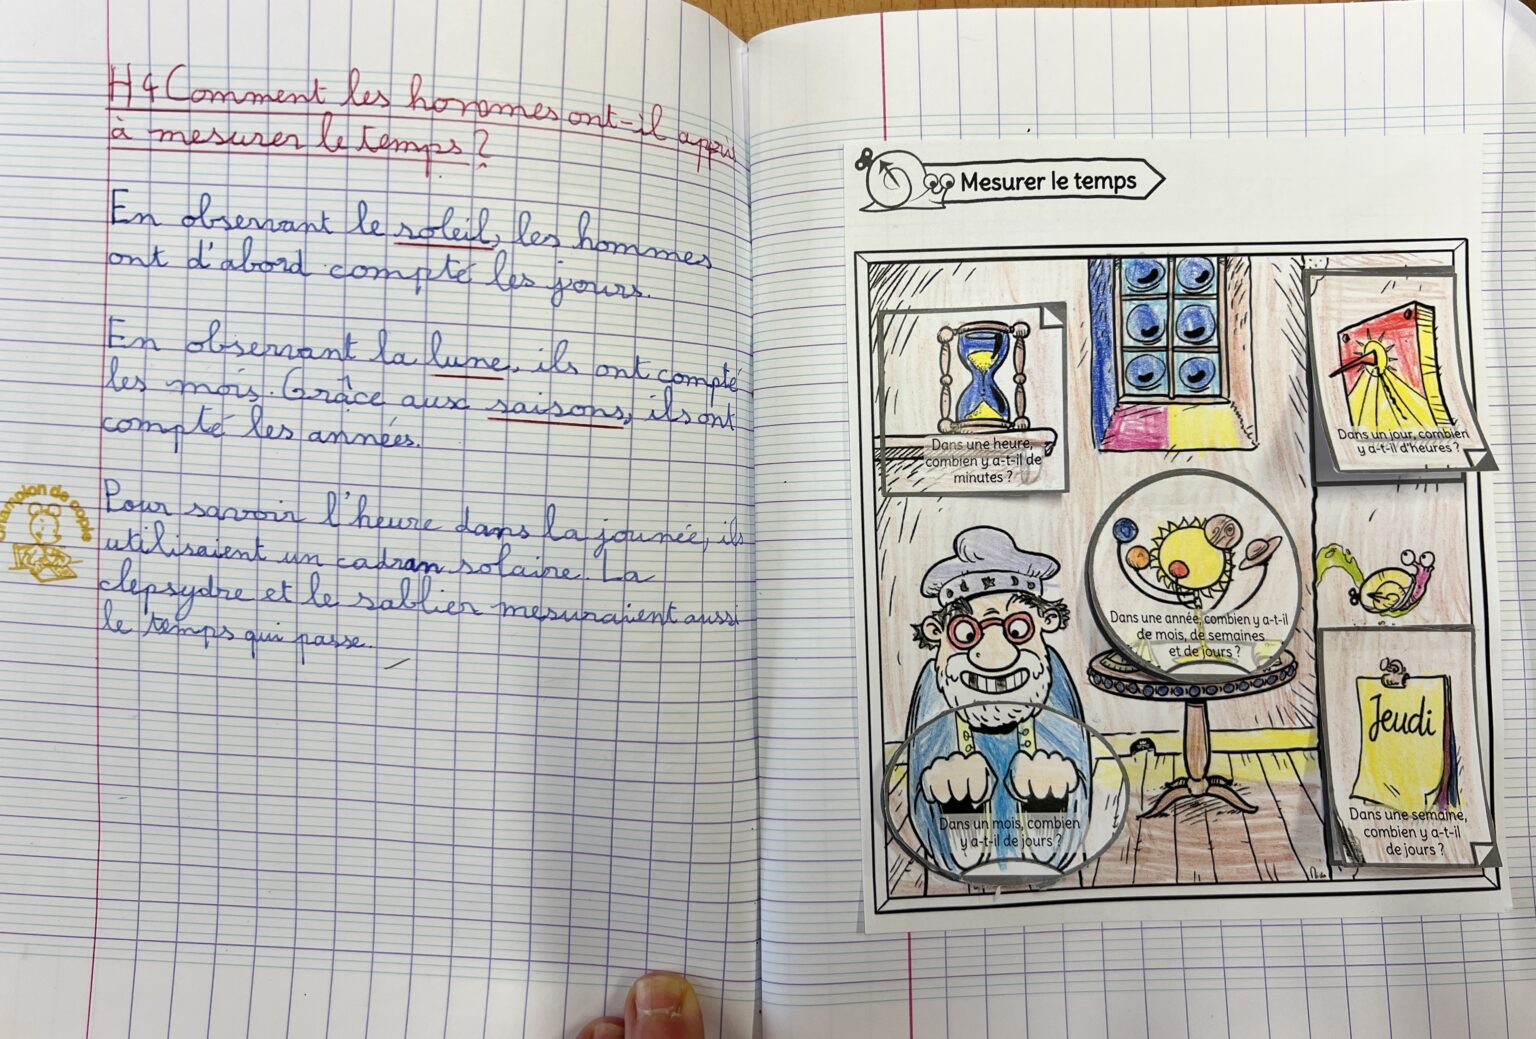 H4 Comment les hommes ont-il appris
à mesurer le temps ?
En observant le soleil, les hommes
ont d'abord compté les jours.
En observant la lune, ils ont compté
les mois. Grâce aux saisons, ils ont
compté les années.
Pour savoir l'heure dans la journée, ils
utilisaient un cadran solaire. La
clepsydre et le sablier mesuraient aussi
le temps qui passe.
Champion de copie
Mesurer le temps
Dans une heure,
combien y a-t-il de
minutes ?
Dans un jour, combien
y a-t-il d'heures ?
Dans une année, combien y a-t-il
de mois, de semaines
et de jours ?
Jeudi
Dans une semaine,
combien y a-t-il
de jours ?
Dans un mois, combien
y a-t-il de jours ?